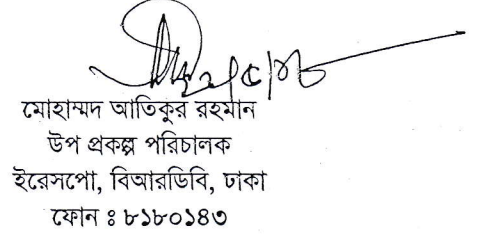 মোহাম্মদ আতিকুর রহমান
উপ প্রকল্প পরিচালক
ইরেসপো, বিআরডিবি, ঢাকা
ফোন ঃ ৮১৮০১৪৩